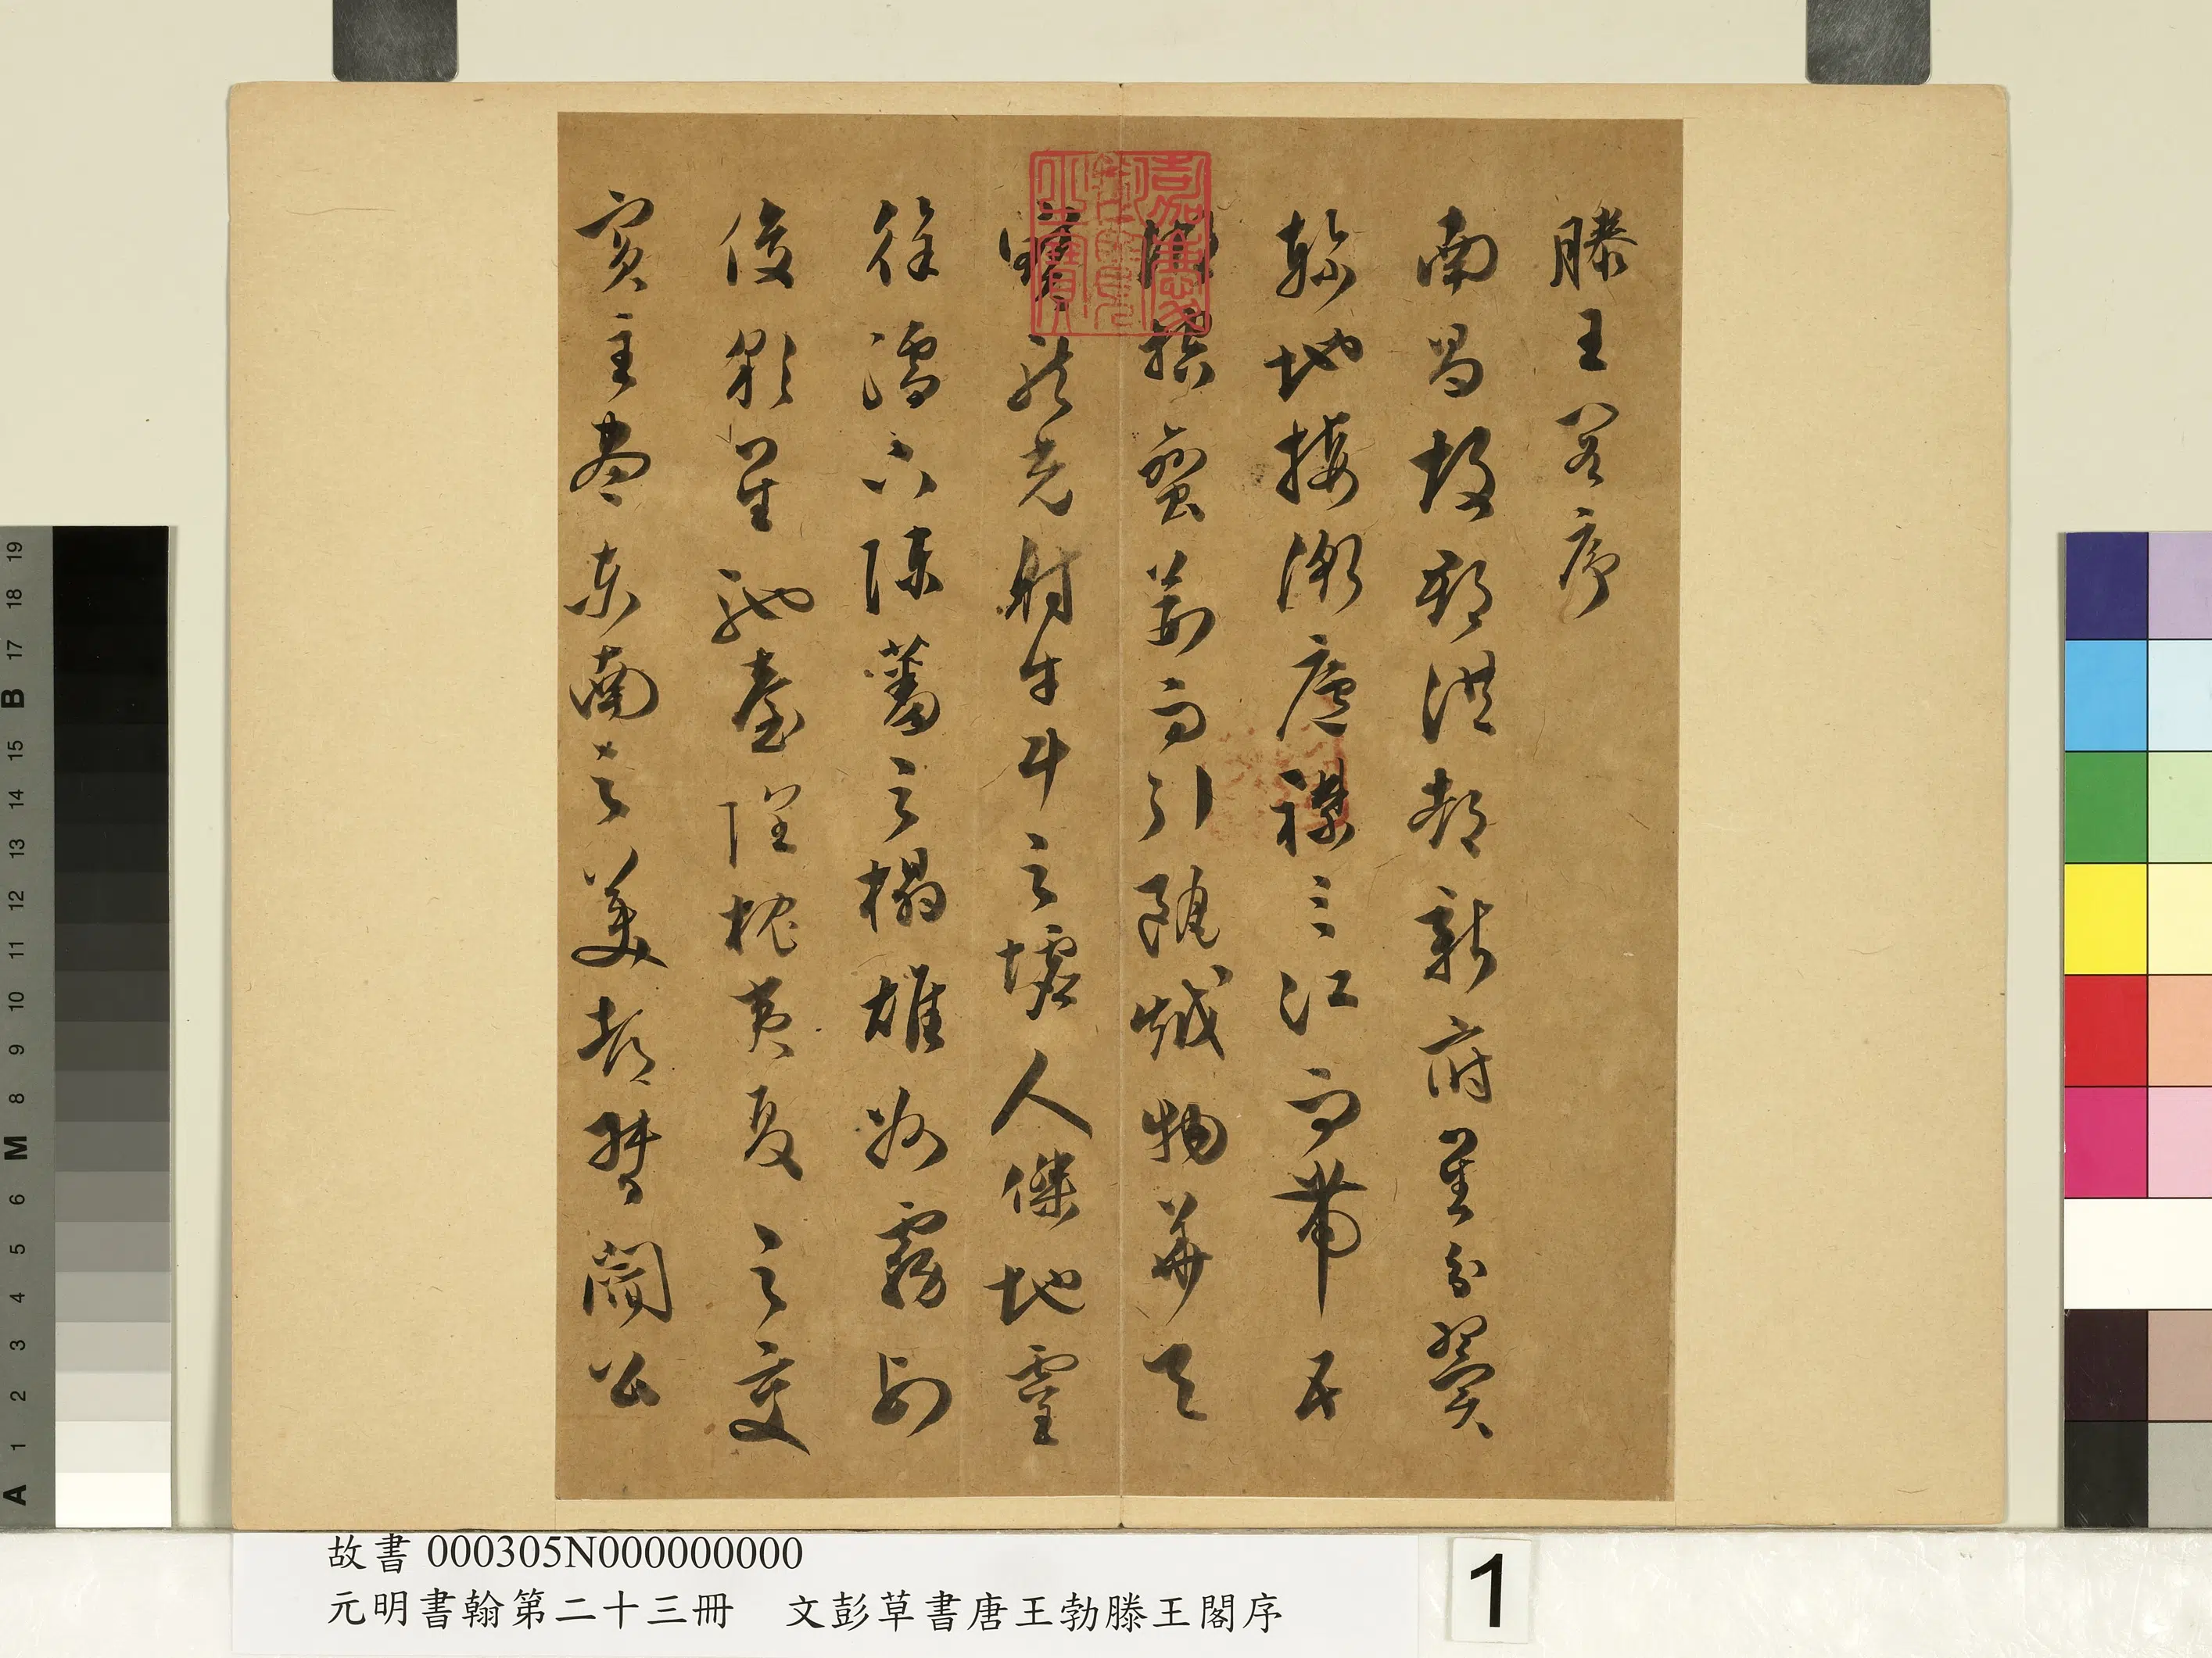 滕王閣序
南昌故郡洪都新府星分翼
軫地接衡廬襟三江而帶五
湖控蠻荊而引甌越物華天
寶龍光射牛斗之墟人傑地靈
徐孺下陳蕃之榻雄州霧列
俊彩星馳臺隍枕夷夏之交
賓主盡東南之美都督閻公
嘉慶御覽之寶
故書 000305N000000000
元明書翰第二十三冊 文彭草書唐王勃滕王閣序
1
A 1 2 3 4 5 6 M 8 9 10 11 12 13 14 15 B 17 18 19